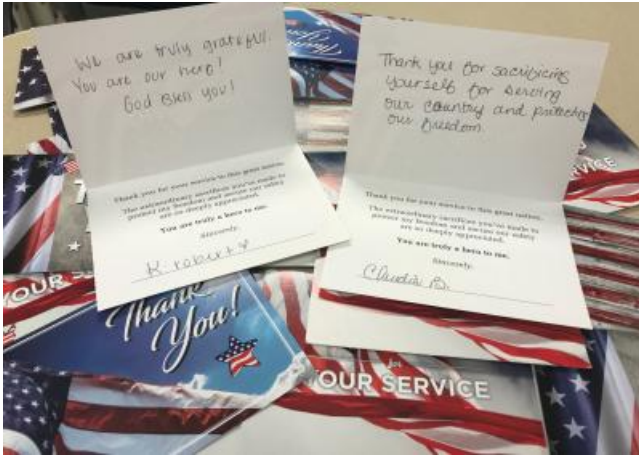 We are truly grateful.
You are our hero!
God Bless you!
Thank you for your service to this great nation.
The extraordinary sacrifices you've made to
protect my freedom and secure our safety
are so deeply appreciated.
You are truly a hero to me.
Sincerely,
K. robert
Thank you for sacrificing
yourself for serving
our country and protecting
our freedom.
Thank you for your service to this great nation.
The extraordinary sacrifices you've made to
protect my freedom and secure our safety
are so deeply appreciated.
You are truly a hero to me.
Sincerely,
Claudia B.
Thank
You!
SERVICE
YOUR S
Thank
You!
for
YOUR SERVICE